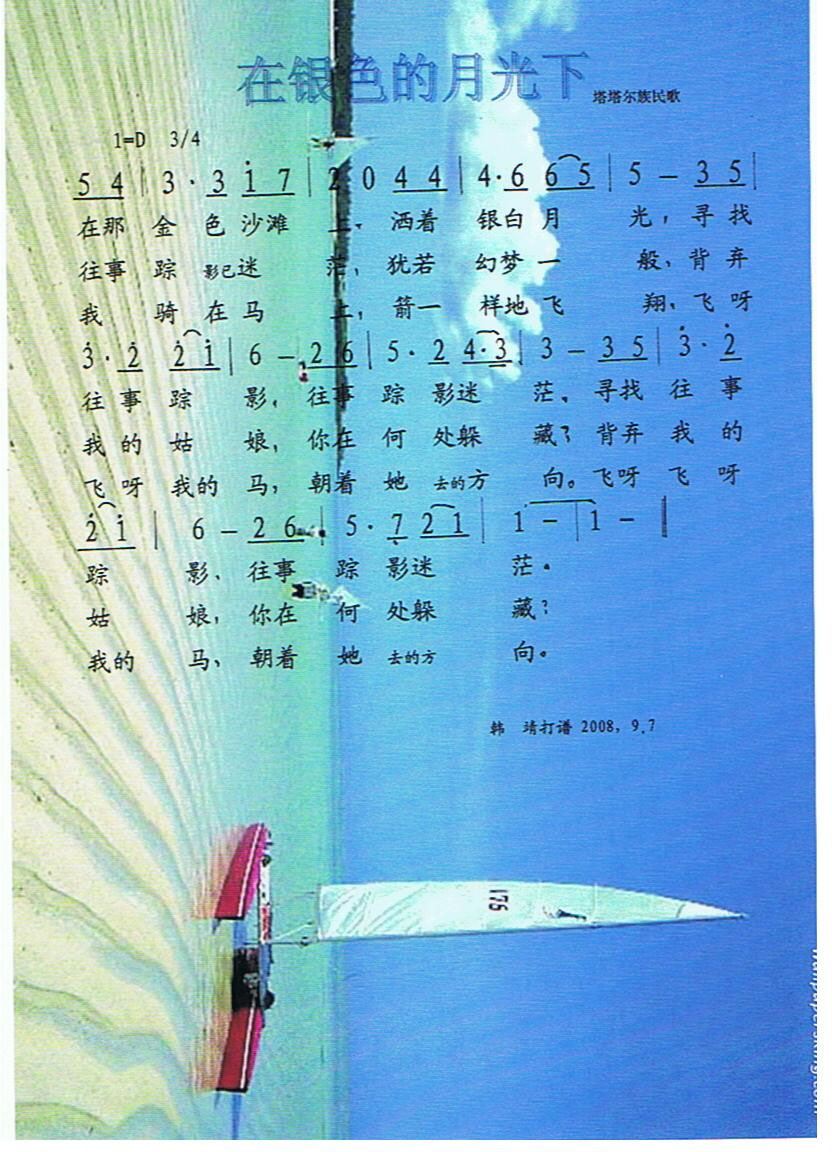 在银色的月光下
塔塔尔族民歌
1=D 3/4
5 4 | 3 · 3 i 7 | 2 0 4 4 | 4 · 6 6 5 | 5 — 3 5 |
在那 金 色 沙滩 上， 洒着 银白 月 光，寻 找
往事 踪 影已迷 茫，犹若 幻梦 一 般，背 弃
我 骑 在 马 上，箭一 样地 飞 翔，飞 呀
3̇ · 2̇ 2̇ i | 6 — 2 6 | 5 · 2 4 · 3 | 3 — 3 5 | 3̇ · 2̇
往 事 踪 影，往事 踪 影迷 茫。寻找 往 事
我 的 姑 娘，你在 何 处躲 藏？背弃 我 的
飞 呀 我的 马，朝着 她 去的方 向。飞呀 飞 呀
2̇ i | 6 — 2 6 | 5 · 7̣ 2 1 | 1 — | 1 — ‖
踪 影，往事 踪 影迷 茫。
姑 娘，你在 何 处躲 藏？
我的 马，朝着 她 去的方 向。
韩 靖打谱 2008，9.7
175